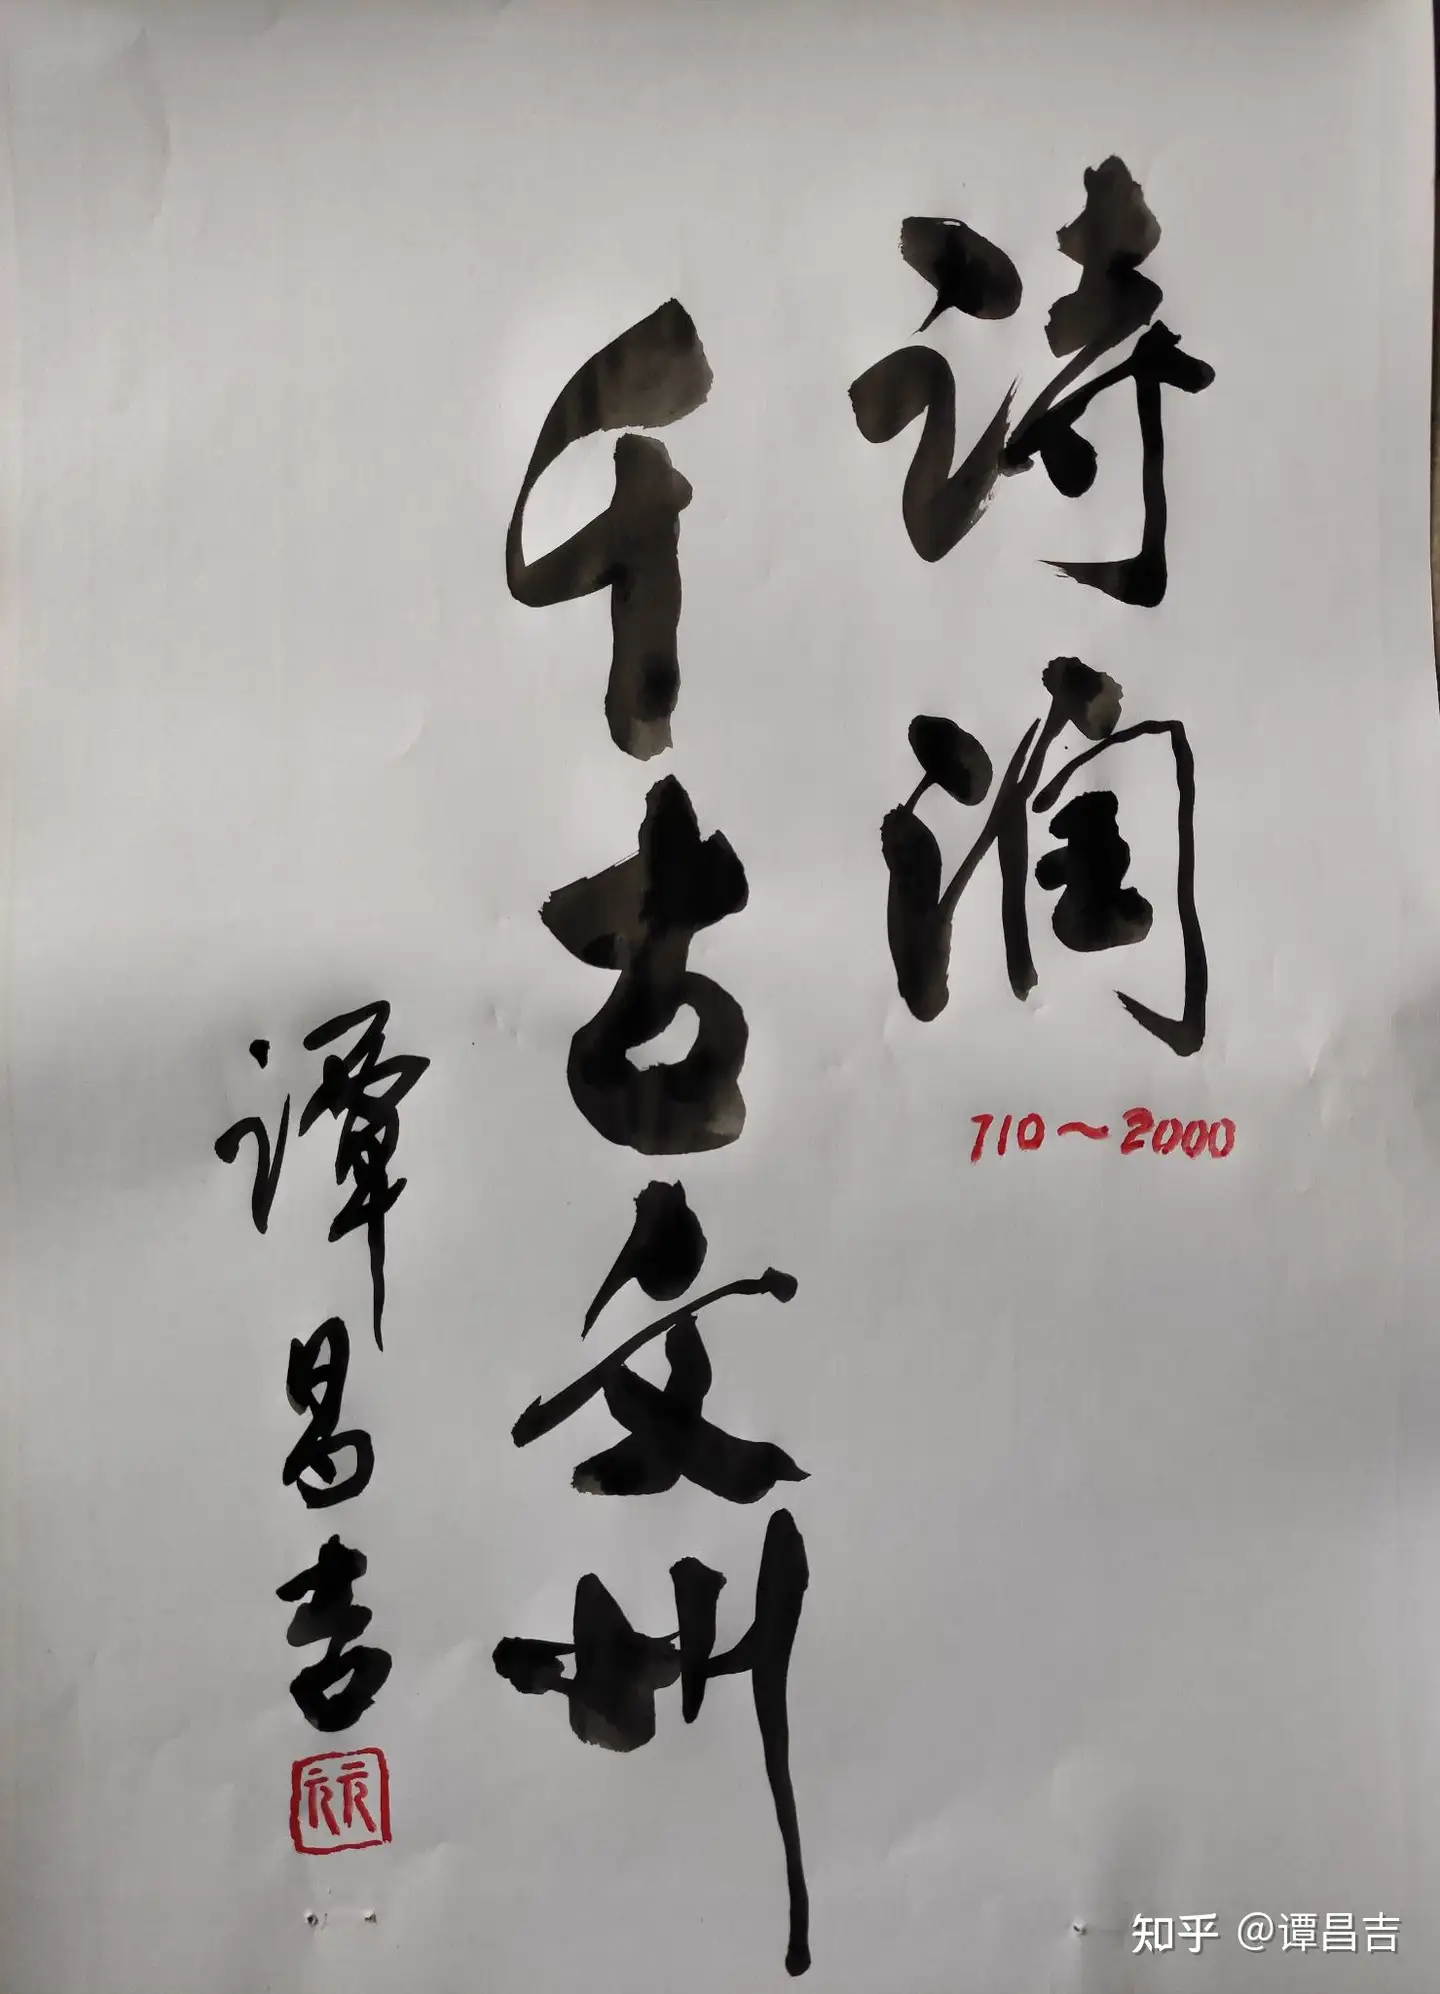 诗润
710～2000
千古文州
谭昌吉
元元
知乎 @谭昌吉